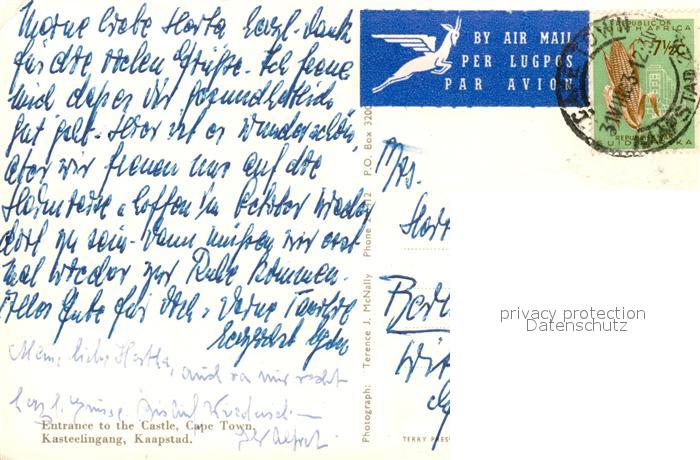 Meine liebe Herta herzl. Dank
für die vielen Grüße. Ich freue
mich dass es Dir gesundheitlich
gut geht. Hier ist es wunderschön,
aber wir freuen uns auf die
Heimreise u. hoffen im October wieder
dort zu sein. Dann müssen wir erst
mal wieder zur Ruhe kommen.
Alles Gute für Dich u. Deine
herzlichst
Meine liebe Hertha, auch von mir recht
herzl. Grüsse
Entrance to the Castle, Cape Town.
Kasteelingang, Kaapstad.
Photograph: Terence J. McNally Phone P.O. Box 320
TERRY PRES
BY AIR MAIL
PER LUGPOS
PAR AVION
REPUBLIC OF
SOUTH AFRICA
7½c
REPUBLIEK VAN
SUID-AFRIKA
Mrs.
Hert
Berl
privacy protection
Datenschutz